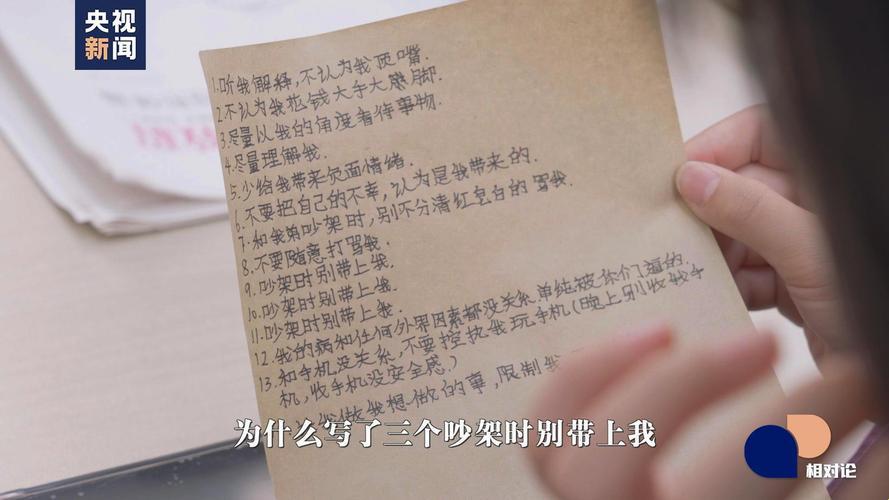 央视
新闻
1.听我解释,不认为我顶嘴.
2.不认为我花钱大手大脚.
3.尽量以我的角度看待事物.
4.尽量理解我.
5.少给我带来负面情绪.
6.不要把自己的不幸,认为是我带来的.
7.和我弟吵架时,别不分清红皂白的骂我.
8.不要随意打骂我.
9.吵架时别带上我.
10.吵架时别带上我.
11.吵架时别带上我.
12.我的病和任何外界因素都没关系单纯被你们逼的.
13.和手机没关系,不要控执我玩手机(晚上别收我手
机,收手机没安全感.)
我做我想做的事,限制我
为什么写了三个吵架时别带上我
相对论